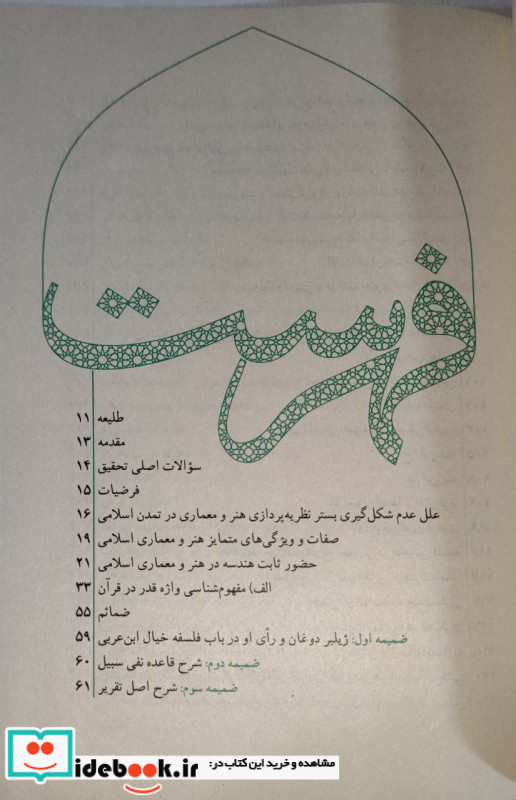 فهرست
طلیعه ۱۱
مقدمه ۱۳
سؤالات اصلی تحقیق ۱۴
فرضیات ۱۵
علل عدم شکل‌گیری بستر نظریه‌پردازی هنر و معماری در تمدن اسلامی ۱۶
صفات و ویژگی‌های متمایز هنر و معماری اسلامی ۱۹
حضور ثابت هندسه در هنر و معماری اسلامی ۲۱
الف) مفهوم‌شناسی واژه قدر در قرآن ۳۳
ضمائم ۵۵
ضمیمه اول: ژیلبر دوغان و رأی او در باب فلسفه خیال ابن‌عربی ۵۹
ضمیمه دوم: شرح قاعده نفی سبیل ۶۰
ضمیمه سوم: شرح اصل تقریر ۶۱
مشاهده و خرید این کتاب در:
idebook.ir